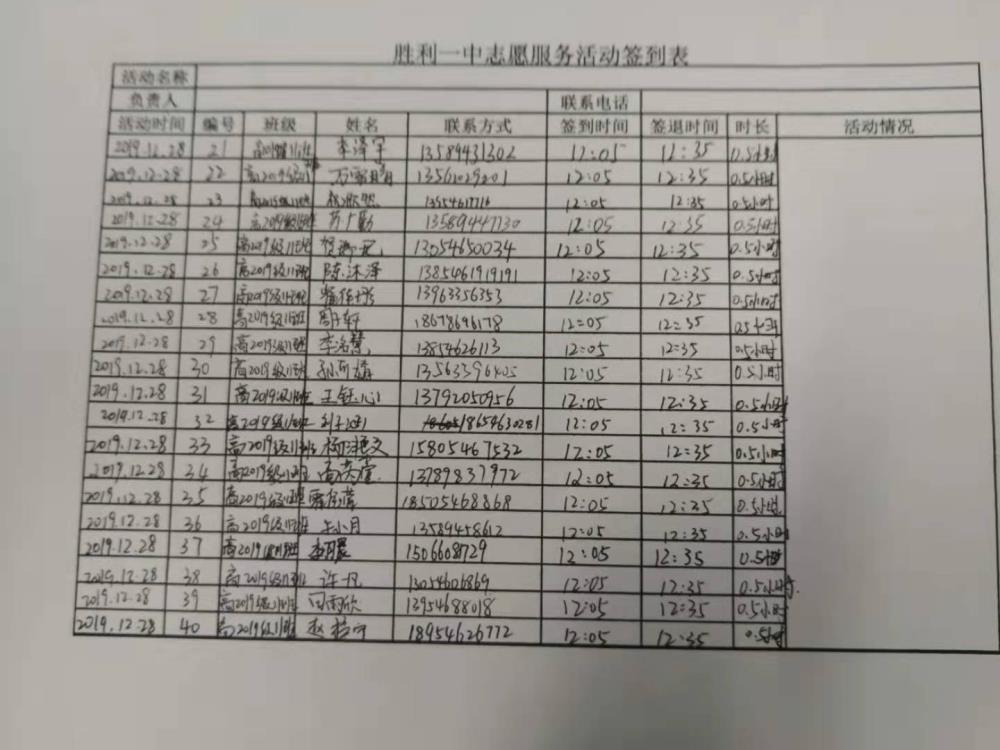 胜利一中志愿服务活动签到表
活动名称
负责人 联系电话
活动时间 编号 班级 姓名 联系方式 签到时间 签退时间 时长 活动情况
2019.12.28 21 李泽宇 13589431302 12:05 12:35 0.5小时
2019.12.28 22 高2019级11班 13561029201 12:05 12:35 0.5小时
2019.12.28 23 高2019级11班 12:05 12:35 0.5小时
2019.12.28 24 高2019级11班 苏广勤 13589447730 12:05 12:35 0.5小时
2019.12.28 25 高2019级11班 13054650034 12:05 12:35 0.5小时
2019.12.28 26 高2019级11班 陈沐泽 138546191919 12:05 12:35 0.5小时
2019.12.28 27 高2019级11班 13963356353 12:05 12:35 0.5小时
2019.12.28 28 高2019级11班 周子轩 18678696178 12:05 12:35 0.5小时
2019.12.28 29 高2019级11班 李洺慧 13854626113 12:05 12:35 0.5小时
2019.12.28 30 高2019级11班 12:05 12:35 0.5小时
2019.12.28 31 高2019级11班 王钰心 13792050956 12:05 12:35 0.5小时
2019.12.28 32 高2019级11班 18654630281 12:05 12:35 0.5小时
2019.12.28 33 高2019级11班 15805467532 12:05 12:35 0.5小时
2019.12.28 34 高2019级11班 13789837972 12:05 12:35 0.5小时
2019.12.28 35 高2019级11班 18505468868 12:05 12:35 0.5小时
2019.12.28 36 高2019级11班 王小月 13589458612 12:05 12:35 0.5小时
2019.12.28 37 高2019级11班 1506608729 12:05 12:35 0.5小时
2019.12.28 38 高2019级11班 许凡 13054606869 12:05 12:35 0.5小时.
2019.12.28 39 高2019级11班 闫雨欣 13954688018 12:05 12:35 0.5小时
2019.12.28 40 高2019级11班 18954626772 12:05 12:35 0.5小时